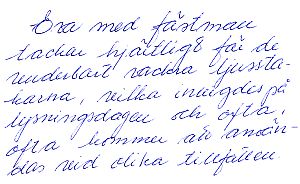 Eva med fästman
tackar hjärtligt för de
underbart vackra ljussta-
karna, vilka invigdes på
lysningsdagen och ofta,
ofta kommer att använ-
das vid olika tillfällen.